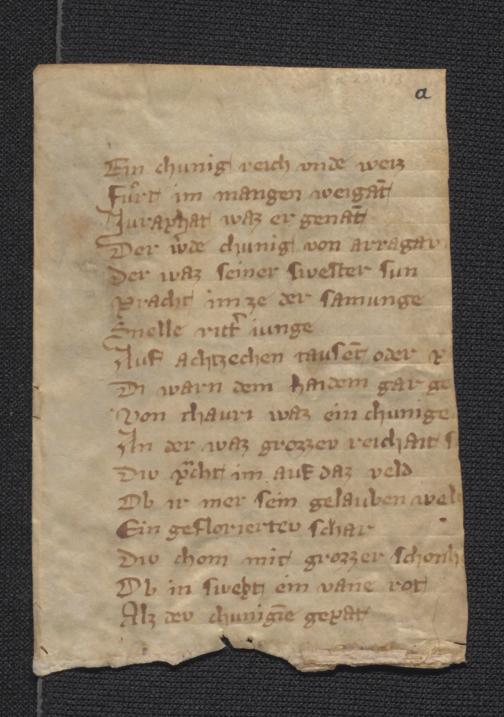 a
Ein chunig reich vnde weis
Fůrt im mangen weigāt
Iuraphat waz er genāt
Der w̓de chunig von arragar
Der waz seiner swester sun
Pracht im ze der samunge
Snelle rit͛ iunge
Auf achtzechen tausēt oder
Di warn dem haidem gar ge
Von chauri waz ein chunige
In der waz grozzer reichait
Div p̃cht im auf daz veld
Ob ir mer sein gelauben wel
Ein geflorierter schar
Div chom mit grozzer schonh
Ob in swebt ein vane rot
Alz der chunigīe gepat